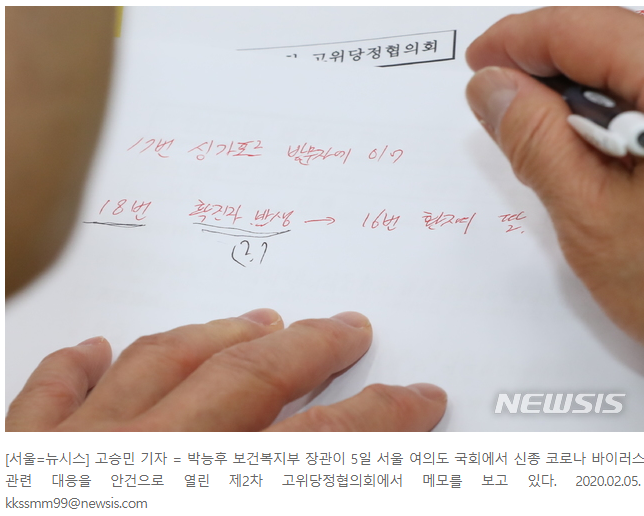 고위당정협의회
17번 싱가포르 방문자에 이어
18번 확진자 발생 → 16번 환자의 딸.
(2.)
NEWSIS
[서울=뉴시스] 고승민 기자 = 박능후 보건복지부 장관이 5일 서울 여의도 국회에서 신종 코로나 바이러스
관련 대응을 안건으로 열린 제2차 고위당정협의회에서 메모를 보고 있다. 2020.02.05.
kkssmm99@newsis.com